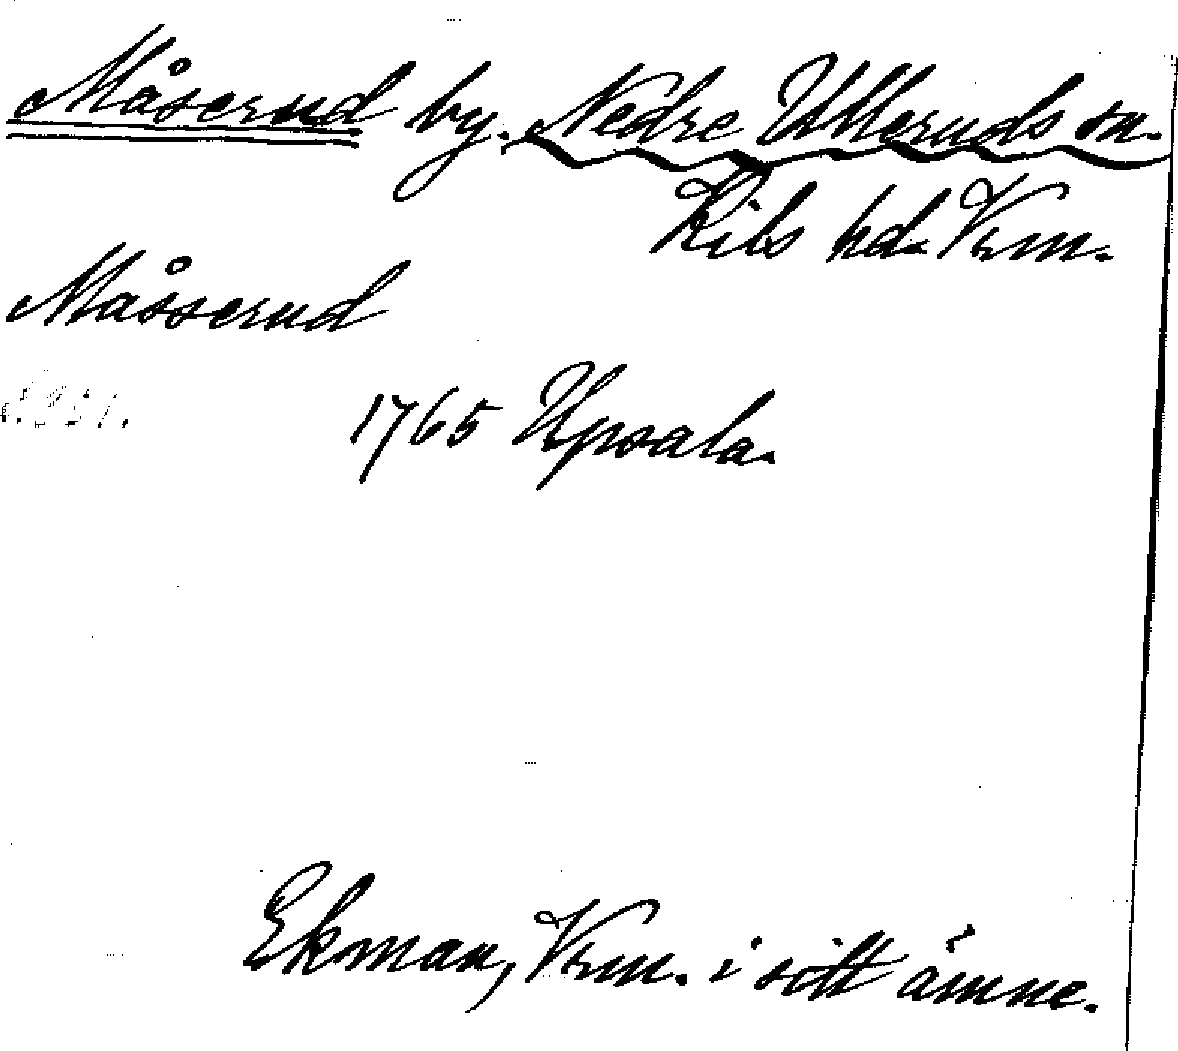 Måserud by. Nedre Ulleruds sn.
Kils hd. Vrm.
Måsserud
1765 Upsala.
Ekman, Vrm. i sitt ämne.